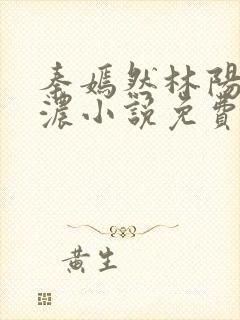 秦嫣然林陽
濃小說免費
黃生